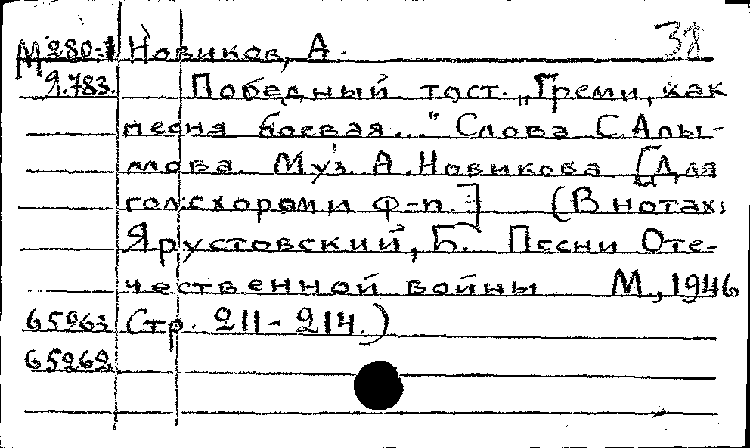 38
М 280-1 Новиков, А.
9.783. Победный тост. „Греми, как
песня боевая..." Слова С Алы-
мова. Муз А. Новикова [Для
гол. с хором и ф-п.] (В нотах:
Ярустовский, Б. Песни Оте-
чественной войны М., 1946
65263 Стр. 211-214.)
65262